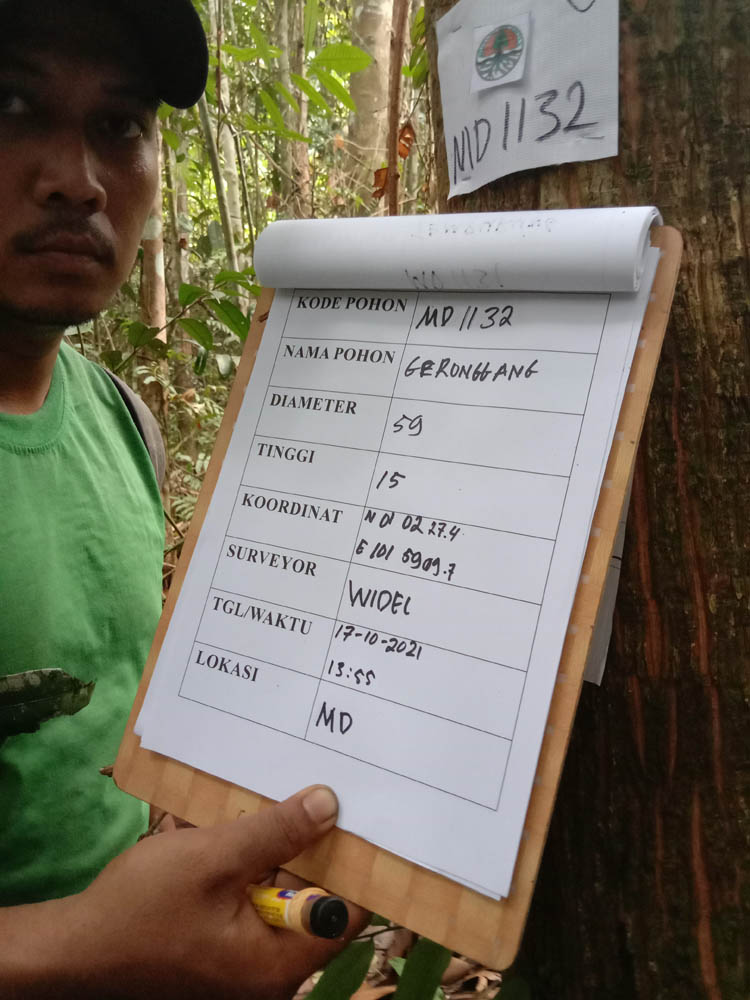 MD 1132
KODE POHON MD 1132
NAMA POHON GERONGGANG
DIAMETER 59
TINGGI 15
KOORDINAT N 01 02 27.4
E 101 5909.7
SURVEYOR WIDEL
TGL/WAKTU 17-10-2021
13:55
LOKASI MD